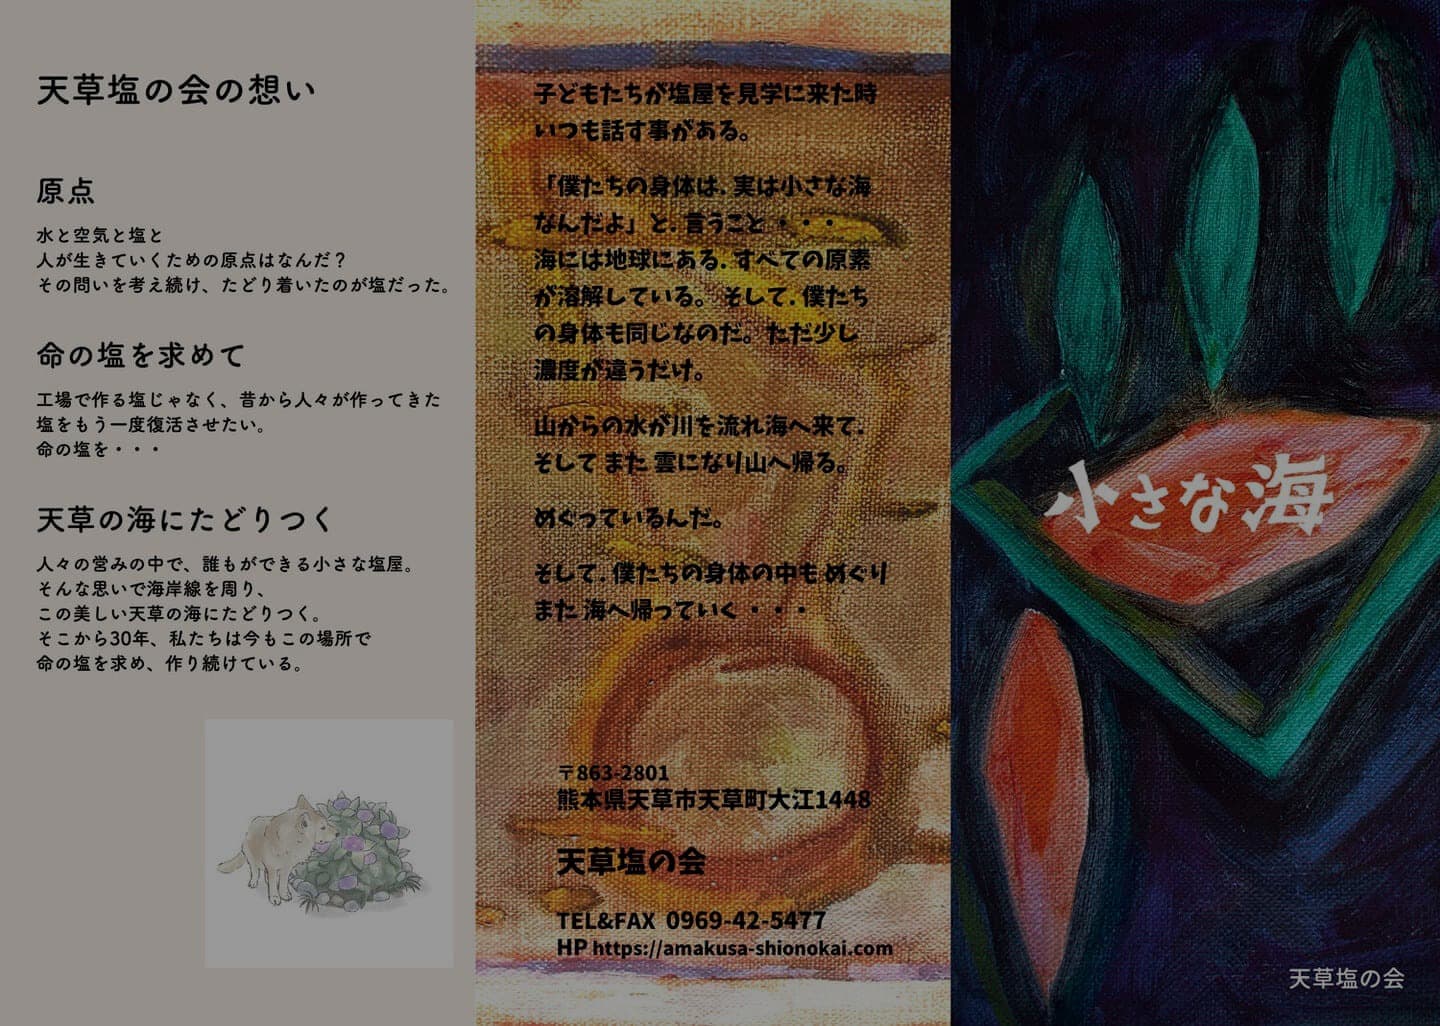 天草塩の会の想い
原点
水と空気と塩と
人が生きていくための原点はなんだ？
その問いを考え続け、たどり着いたのが塩だった。
命の塩を求めて
工場で作る塩じゃなく、昔から人々が作ってきた
塩をもう一度復活させたい。
命の塩を・・・
天草の海にたどりつく
人々の営みの中で、誰もができる小さな塩屋。
そんな思いで海岸線を周り、
この美しい天草の海にたどりつく。
そこから30年、私たちは今もこの場所で
命の塩を求め、作り続けている。
子どもたちが塩屋を見学に来た時
いつも話す事がある。
「僕たちの身体は、実は小さな海
なんだよ」と、言うこと・・・
海には地球にある、すべての原素
が溶解している。そして、僕たち
の身体も同じなのだ。ただ少し
濃度が違うだけ。
山からの水が川を流れ海へ来て、
そして また 雲になり山へ帰る。
めぐっているんだ。
そして、僕たちの身体の中も めぐり
また 海へ帰っていく・・・
〒863-2801
熊本県天草市天草町大江1448
天草塩の会
TEL&FAX 0969-42-5477
HP https://amakusa-shionokai.com
小さな海
天草塩の会